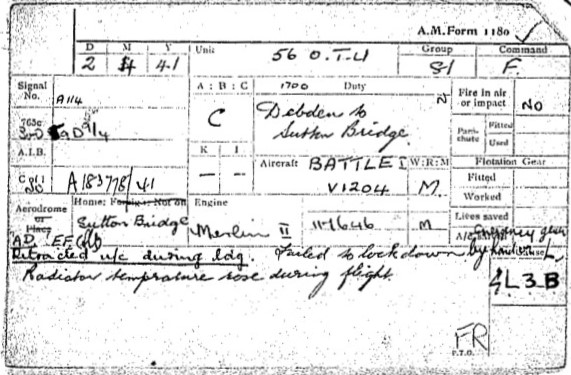 A.M.Form 1180
D M Y Unit 56 O.T.U Group Command
2 4 41 81 F.
Signal No. A114 A : B : C 1700 Duty Fire in air or impact No
765c C Debden to Sutton Bridge Para-chute Fitted
Used
A.I.B. K I Aircraft BATTLE I W:R:M Flotation Gear
— — V1204 M. Fitted
A183778/41 Worked
Aerodrome or Place Home: Foreign: Not on Engine Lives saved
Sutton Bridge Merlin II 11646 M
Emergency gear
Retracted u/c during ldg. Failed to lock down by
Radiator temprature rose during flight. L3B
FR
P.T.O.